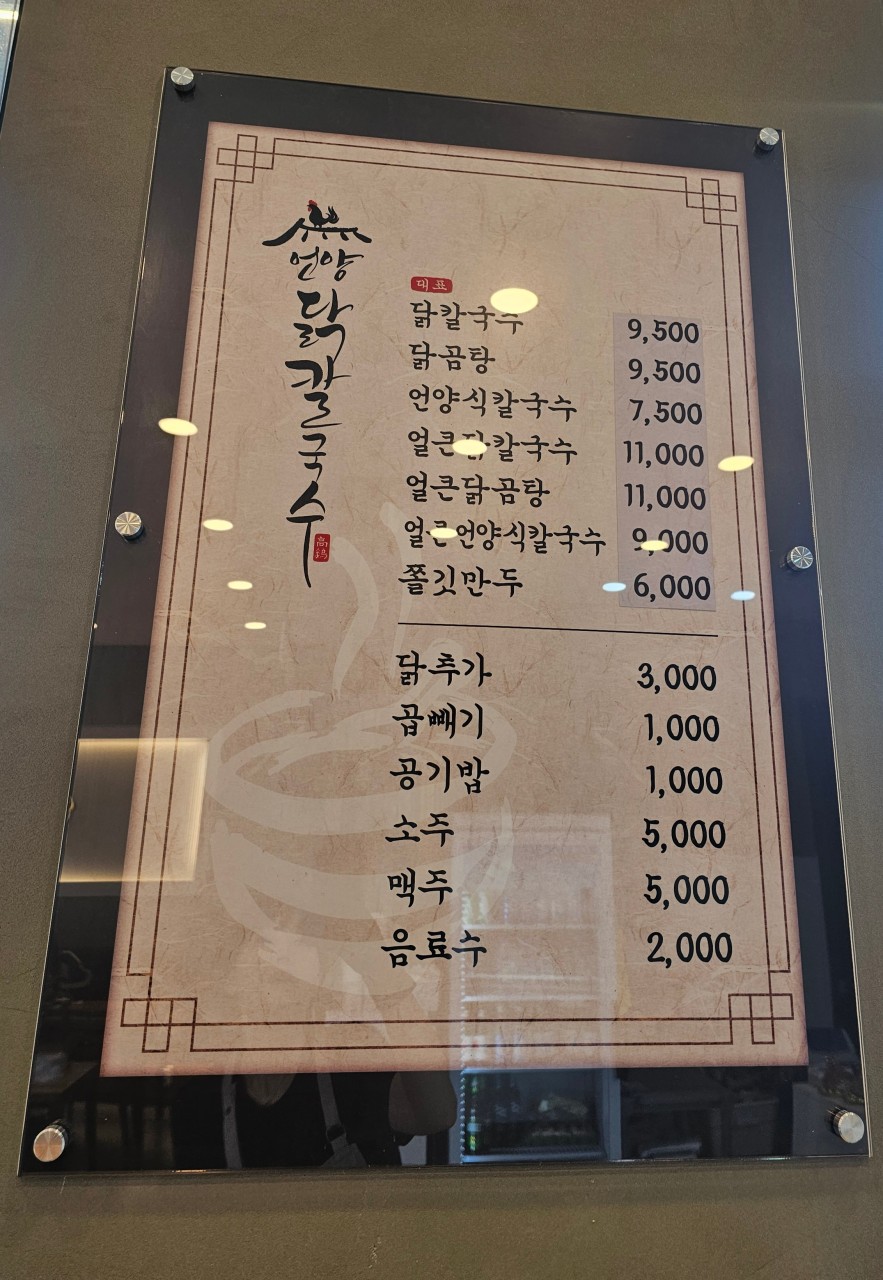 언양
닭칼국수
대표
닭칼국수 9,500
닭곰탕 9,500
언양식칼국수 7,500
얼큰닭칼국수 11,000
얼큰닭곰탕 11,000
얼큰언양식칼국수 9,000
쫄깃만두 6,000
닭추가 3,000
곱빼기 1,000
공기밥 1,000
소주 5,000
맥주 5,000
음료수 2,000